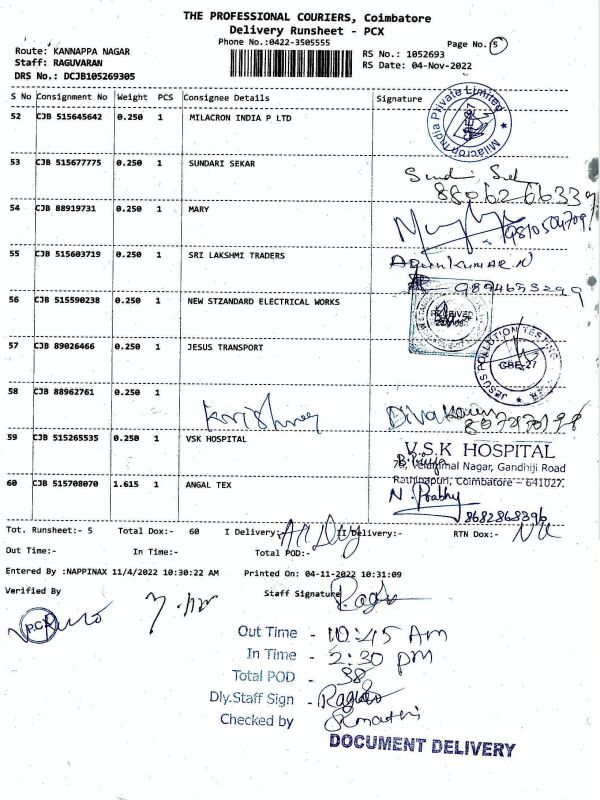 THE PROFESSIONAL COURIERS, Coimbatore
Delivery Runsheet - PCX
Phone No.:0422-3505555
Page No. 5
Route: KANNAPPA NAGAR
RS No.: 1052693
Staff: RAGUVARAN
RS Date: 04-Nov-2022
DRS No.: DCJB105269305
S No Consignment No Weight PCS Consignee Details Signature
52 CJB 515645642 0.250 1 MILACRON INDIA P LTD
Milacron India Private Limited
53 CJB 515677775 0.250 1 SUNDARI SEKAR
54 CJB 88919731 0.250 1 MARY
55 CJB 515603719 0.250 1 SRI LAKSHMI TRADERS
56 CJB 515590238 0.250 1 NEW STZANDARD ELECTRICAL WORKS
RECEIVED
57 CJB 89026466 0.250 1 JESUS TRANSPORT
JESUS POLLUTION TESTING
CBE-27
58 CJB 88962761 0.250 1
59 CJB 515265535 0.250 1 VSK HOSPITAL
V.S.K HOSPITAL
Nagar, Gandhiji Road
Rathinapuri, Coimbatore - 641027.
60 CJB 515708070 1.615 1 ANGAL TEX
N. Prabhu
8682868396
Tot. Runsheet:- 5 Total Dox:- 60 I Delivery:- II Delivery:- RTN Dox:-
Out Time:- In Time:- Total POD:-
Entered By :NAPPINAX 11/4/2022 10:30:22 AM Printed On: 04-11-2022 10:31:09
Verified By Staff Signature
Out Time - 10:45 Am
In Time - 2:30 pm
Total POD - 38
Dly.Staff Sign -
Checked by
DOCUMENT DELIVERY